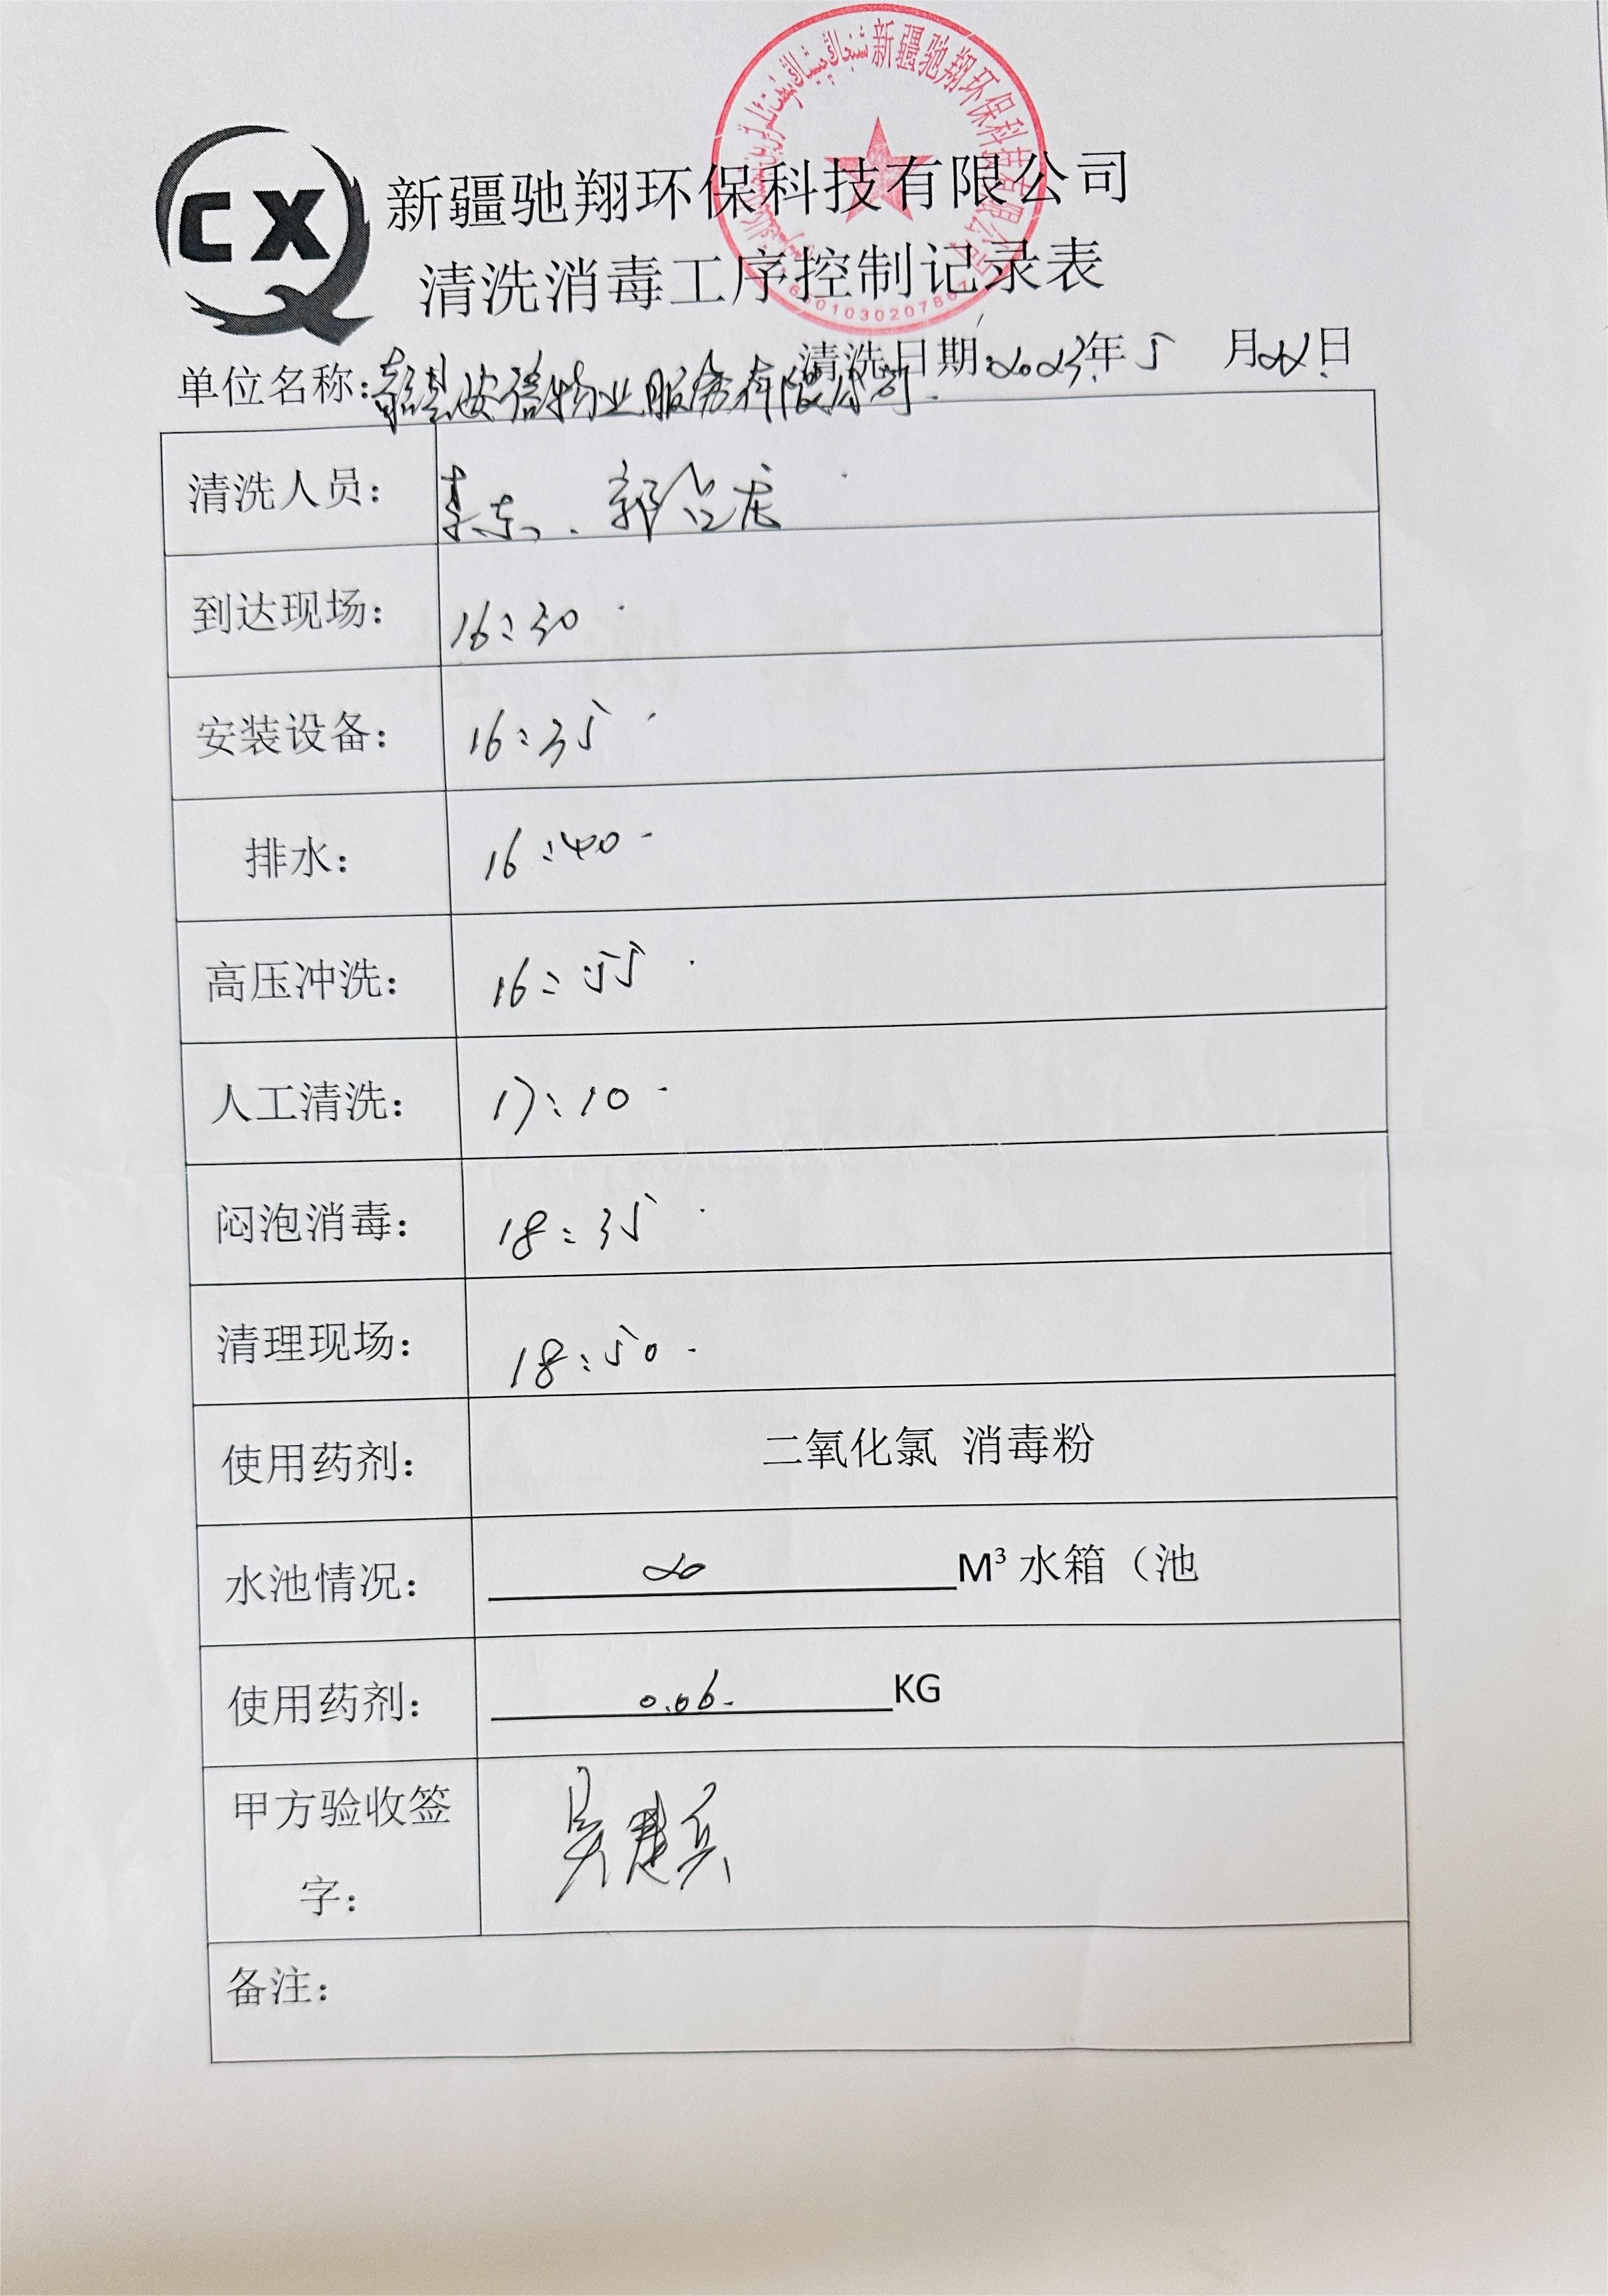 CX
新疆驰翔环保科技有限公司
新疆驰翔环保科技有限公司
清洗消毒工序控制记录表
清洗日期:2023年5月22日
单位名称:安信物业服务有限公司.
清洗人员:李东、郭合龙
到达现场:16:30
安装设备:16:35
排水:16:40
高压冲洗:16:55
人工清洗:17:10
闷泡消毒:18:35
清理现场:18:50
使用药剂:二氧化氯 消毒粉
水池情况:20 M³ 水箱（池
使用药剂:0.06 KG
甲方验收签
字:吴建兵
备注: